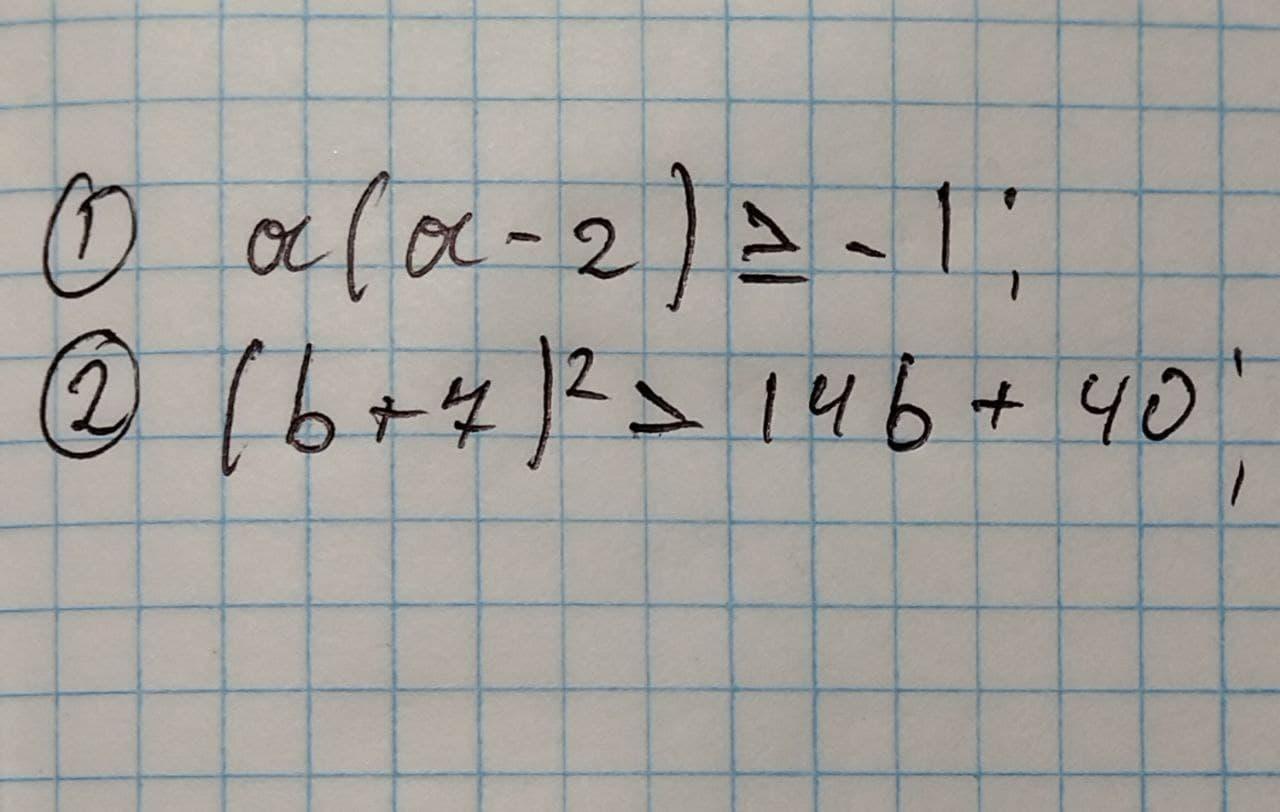 ① a(a-2) ≥ -1;
② (b+7)² > 14b + 40;